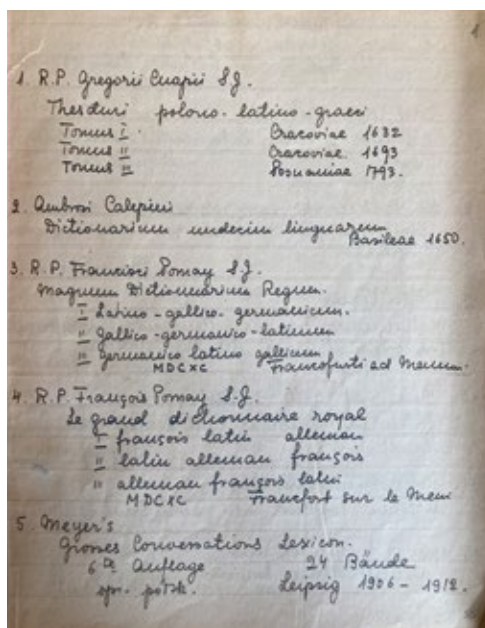 1
1. R.P. Gregorii Cnapii S.J.
Thesauri polono-latino-graeci
Tomus I. Cracoviae 1632
Tomus II Cracoviae 1693
Tomus III Posnaniae 1793.
2. Ambrosi Calepini
Dictionarium undecim linguarum
Basileae 1650.
3. R.P. Francisci Pomay S.J.
Magnum Dictionnarium Regium.
I Latino-gallico-germanicum.
II gallico-germanico-latinum
III germanico latino gallicum
MDCXC Francofurti ad Menum.
4. R.P. François Pomay S.J.
Le grand dictionnaire royal
I françois latin alleman
II latin alleman françois
III alleman françois latin
MDCXC Francfort sur le Mein
5. Meyer's
Grosses Conversations Lexicon.
6te Auflage 24 Bände
opr. półsk. Leipzig 1906-1912.